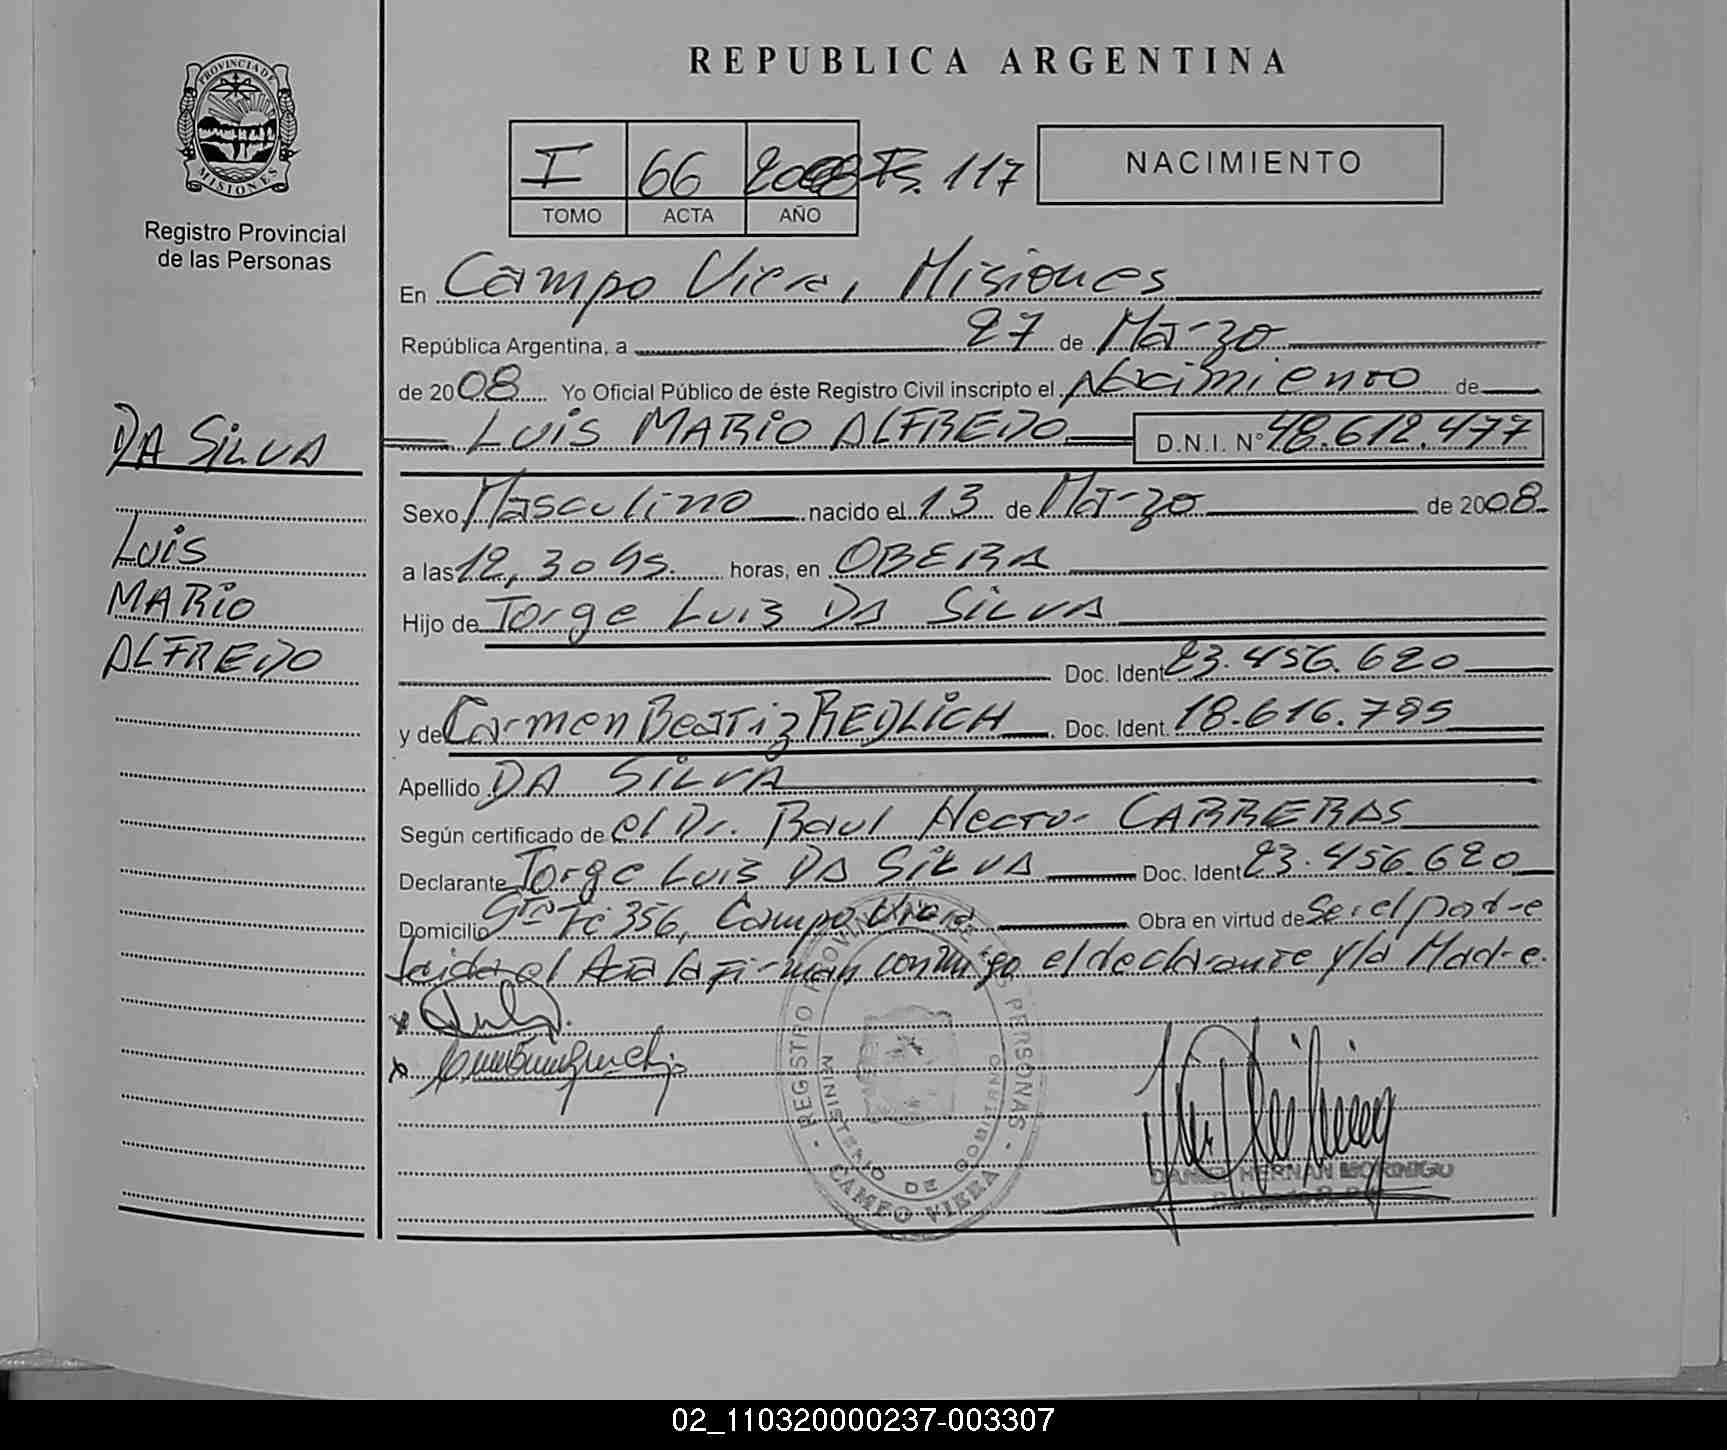 REPUBLICA ARGENTINA
PROVINCIA DE
MISIONES
Registro Provincial
de las Personas
I 66 2008 Fs. 117
TOMO ACTA AÑO
NACIMIENTO
En Campo Viera, Misiones
República Argentina, a 27 de Marzo
de 2008 Yo Oficial Público de éste Registro Civil inscripto el Nacimiento de
LUIS MARIO ALFREDO D.N.I. N° 48.612.477
DA SILVA
LUIS
MARIO
ALFREDO
Sexo Masculino nacido el 13 de Marzo de 2008.
a las 12,30 hs. horas, en OBERA
Hijo de Jorge Luis DA SILVA
Doc. Ident 23.456.620
y de Carmen Beatriz REDLICH Doc. Ident. 18.616.795
Apellido DA SILVA
Según certificado de el Dr. Raul Hector CARRERAS
Declarante Jorge Luis DA SILVA Doc. Ident 23.456.620
Domicilio 356, Campo Viera Obra en virtud de Ser el padre
Leida el Acta la firman conmigo el declarante y la Madre.
REGISTRO PROVINCIAL DE LAS PERSONAS
MINISTERIO DE GOBIERNO
CAMPO VIERA
DANIEL HERNAN MORINIGO
02_110320000237-003307